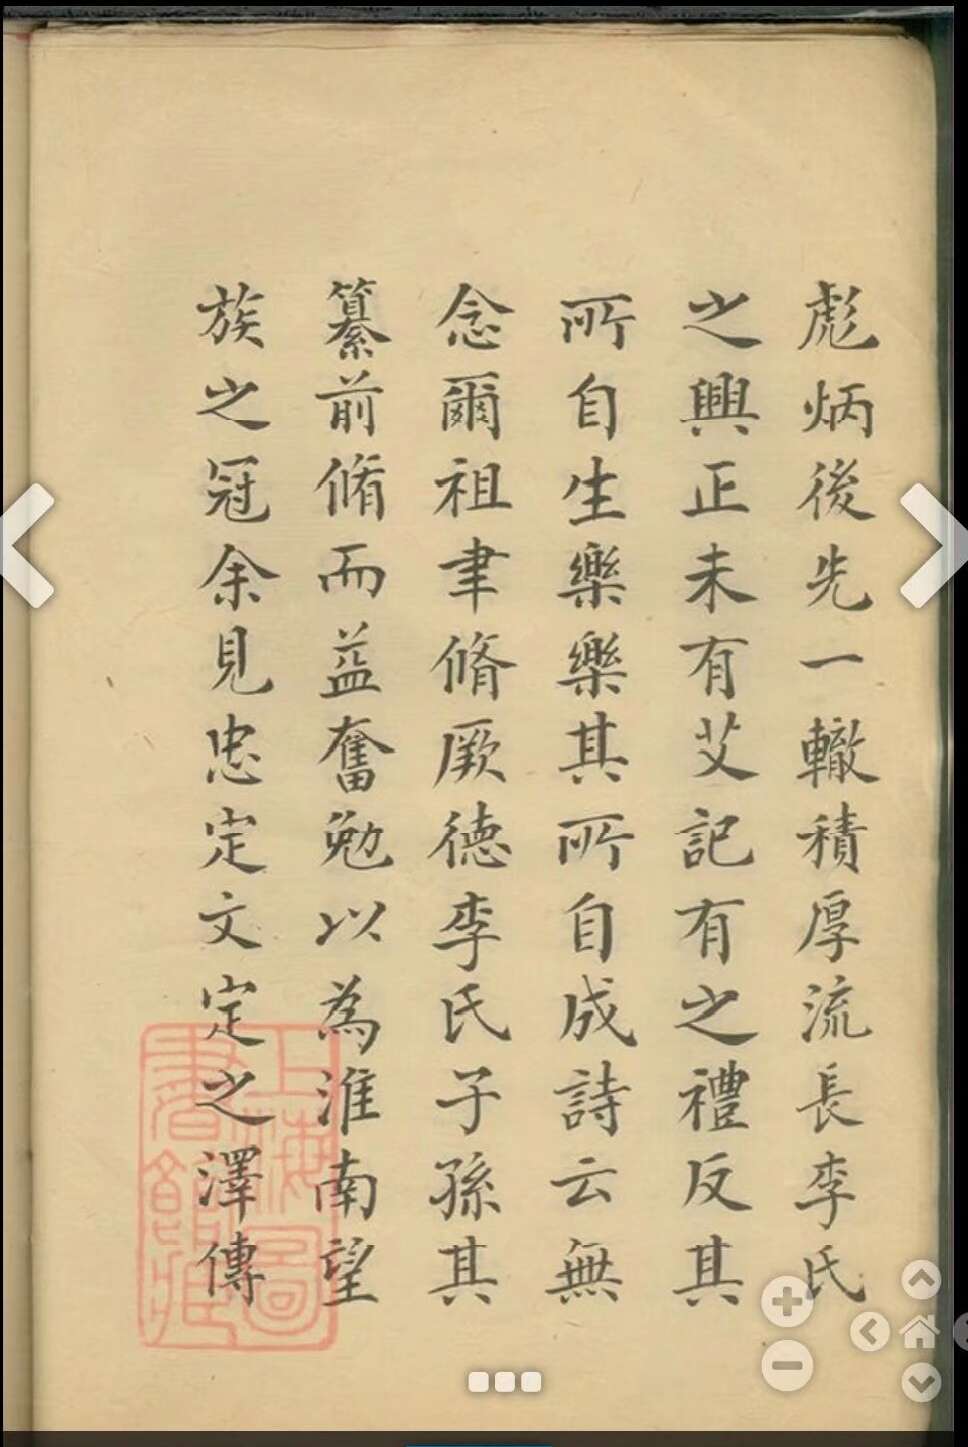 彪炳後先一轍積厚流長李氏
之興正未有艾記有之禮反其
所自生樂樂其所自成詩云無
念爾祖聿脩厥德李氏子孫其
纂前脩而益奮勉以為淮南望
族之冠余見忠定文定之澤傳
上海圖書館藏